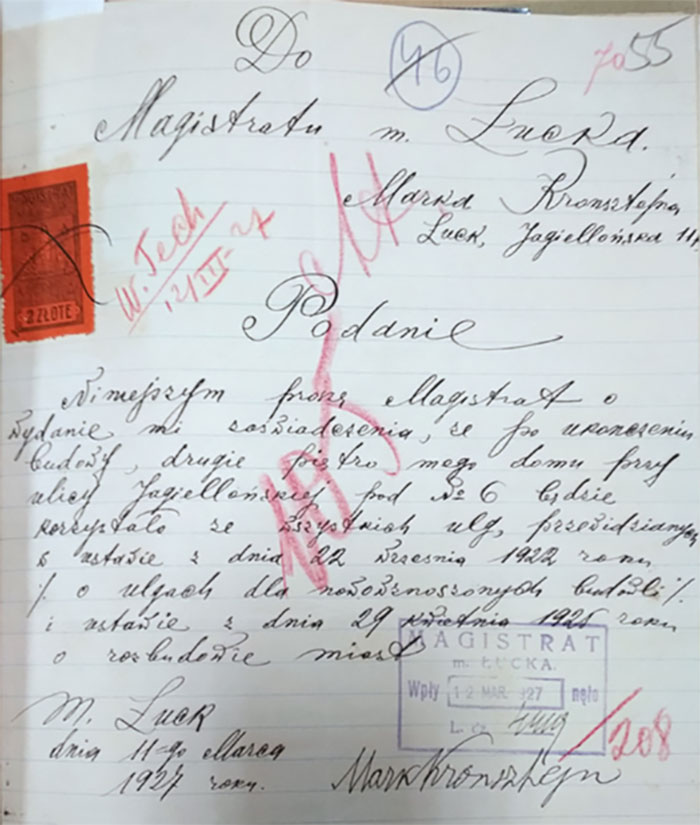 Do
46
7055
Magistratu m. Łucka.
Marka Kronsztejna
Łuck, Jagiellońska 11
3 ZŁOTE
W. Tech
12/III-27
Podanie
Niniejszym proszę Magistrat o
wydanie mi zaświadczenia, że po ukończeniu
budowy, drugie piętro mego domu przy
ulicy Jagiellońskiej pod № 6 będzie
korzystało ze wszystkich ulg, przewidzianych
w ustawie z dnia 22 września 1922 roku
/. o ulgach dla nowownoszonych budowli ./.
i ustawie z dnia 29 kwietnia 1925 roku
o rozbudowie miast
MAGISTRAT
m. ŁUCKA.
Wpły 12 MAR. 1927 nęło
L. dz.
/208
M. Łuck
dnia 11-go Marca
1927 roku.
Mark Kronsztejn